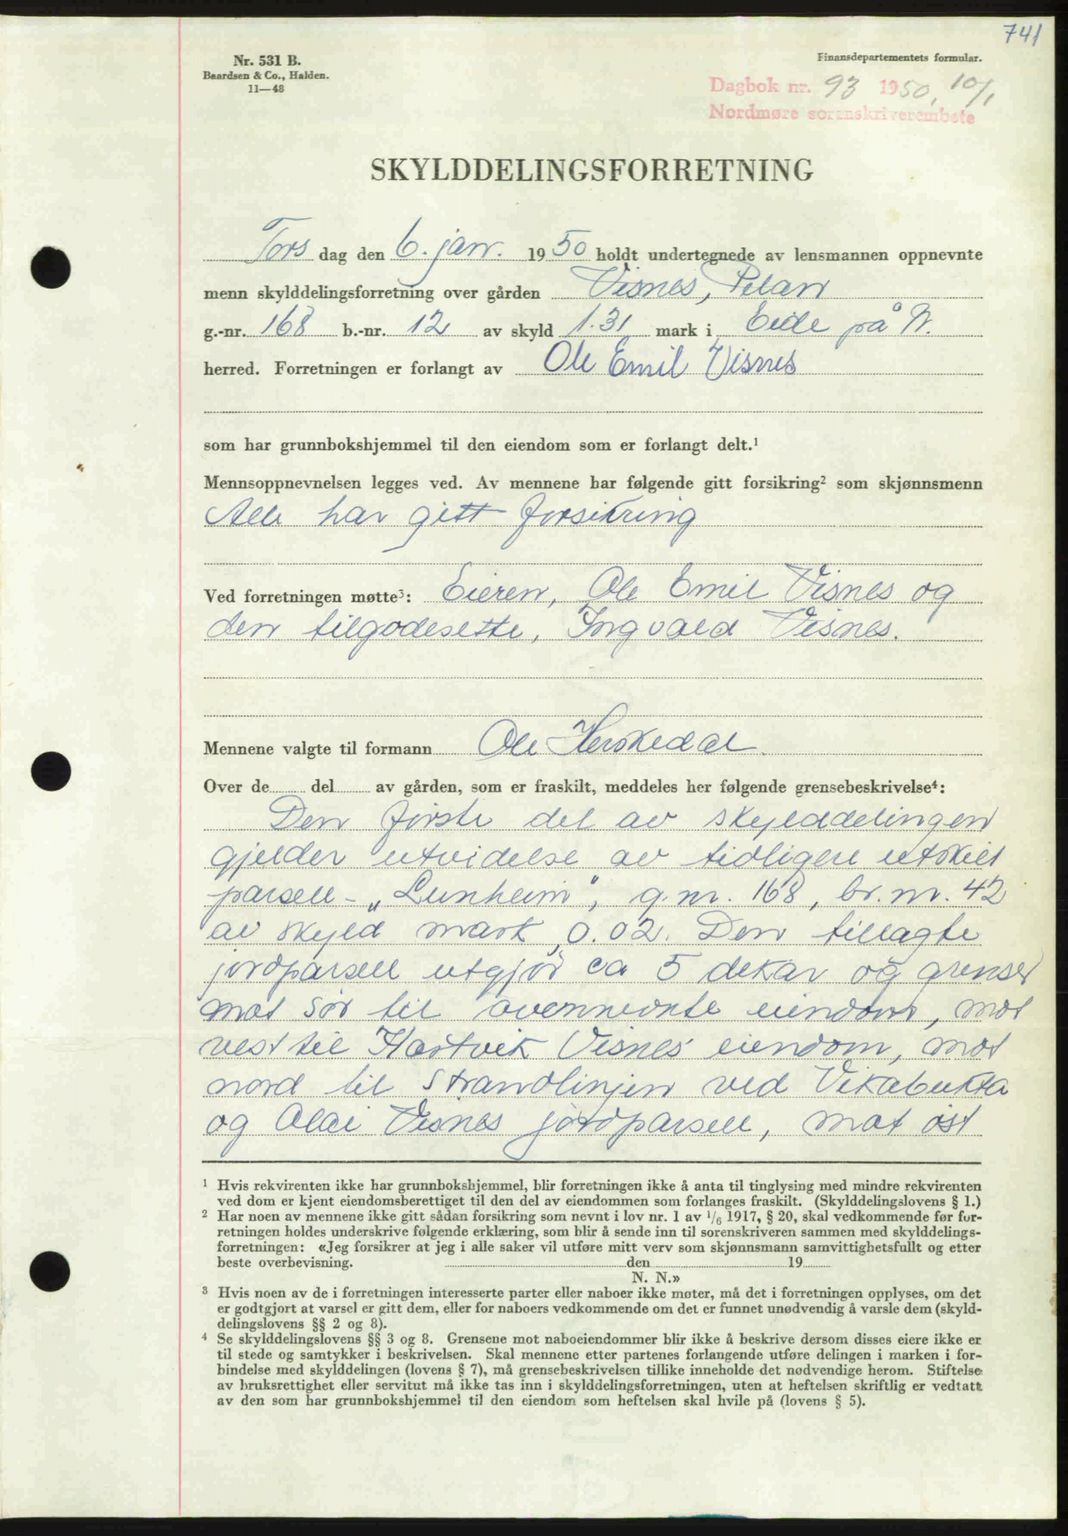 741
Nr. 531 B.
Baardsen & Co., Halden.
11—48
Finansdepartementets formular.
Dagbok nr. 93 1950, 10/1
Nordmøre sorenskriverembete
SKYLDDELINGSFORRETNING
Tors dag den 6. jan. 1950 holdt undertegnede av lensmannen oppnevnte
menn skylddelingsforretning over gården Visnes, Pelan
g.-nr. 168 b.-nr. 12 av skyld 1.31 mark i Eide på N.
herred. Forretningen er forlangt av Ole Emil Visnes
som har grunnbokshjemmel til den eiendom som er forlangt delt.¹
Mennsoppnevnelsen legges ved. Av mennene har følgende gitt forsikring² som skjønnsmenn
Alle har gitt forsikring
Ved forretningen møtte³: Eieren, Ole Emil Visnes og
den tilgodesette, Ingvald Visnes.
Mennene valgte til formann Ole Herskedal
Over de del av gården, som er fraskilt, meddeles her følgende grensebeskrivelse⁴:
Den første del av skylddelingen
gjelder utvidelse av tidligere utskilt
parsell - „Lunheim", g.nr. 168, br. nr. 42
av skyld mark 0.02. Den tillagte
jordparsell utgjør ca 5 dekar og grenser
mot sør til ovennevnte eiendom, mot
vest til Hartvik Visnes eiendom, mot
nord til strandlinjen ved Vikabukta
og Olai Visnes jordparsell, mot øst
¹ Hvis rekvirenten ikke har grunnbokshjemmel, blir forretningen ikke å anta til tinglysing med mindre rekvirenten
ved dom er kjent eiendomsberettiget til den del av eiendommen som forlanges fraskilt. (Skylddelingslovens § 1.)
² Har noen av mennene ikke gitt sådan forsikring som nevnt i lov nr. 1 av 1/6 1917, § 20, skal vedkommende før for-
retningen holdes underskrive følgende erklæring, som blir å sende inn til sorenskriveren sammen med skylddelings-
forretningen: «Jeg forsikrer at jeg i alle saker vil utføre mitt verv som skjønnsmann samvittighetsfullt og etter
beste overbevisning. den 19
N. N.»
³ Hvis noen av de i forretningen interesserte parter eller naboer ikke møter, må det i forretningen opplyses, om det
er godtgjort at varsel er gitt dem, eller for naboers vedkommende om det er funnet unødvendig å varsle dem (skyld-
delingslovens §§ 2 og 8).
⁴ Se skylddelingslovens §§ 3 og 8. Grensene mot naboeiendommer blir ikke å beskrive dersom disses eiere ikke er
til stede og samtykker i beskrivelsen. Skal mennene etter partenes forlangende utføre delingen i marken i for-
bindelse med skylddelingen (lovens § 7), må grensebeskrivelsen tillike inneholde det nødvendige herom. Stiftelse
av bruksrettighet eller servitut må ikke tas inn i skylddelingsforretningen, uten at heftelsen skriftlig er vedtatt
av den som har grunnbokshjemmel til den eiendom som heftelsen skal hvile på (lovens § 5).